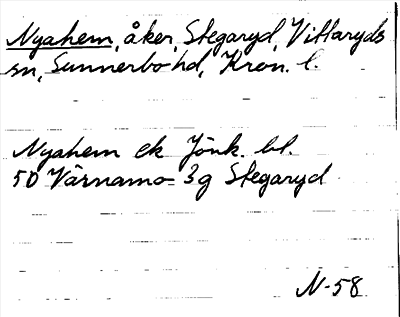 Nyahem, åker, Stegaryd, Vittaryds
sn, Sunnerbo hd, Kron. l.
Nyahem ek Jönk. bl.
5D Värnamo 3g Stegaryd
N-58